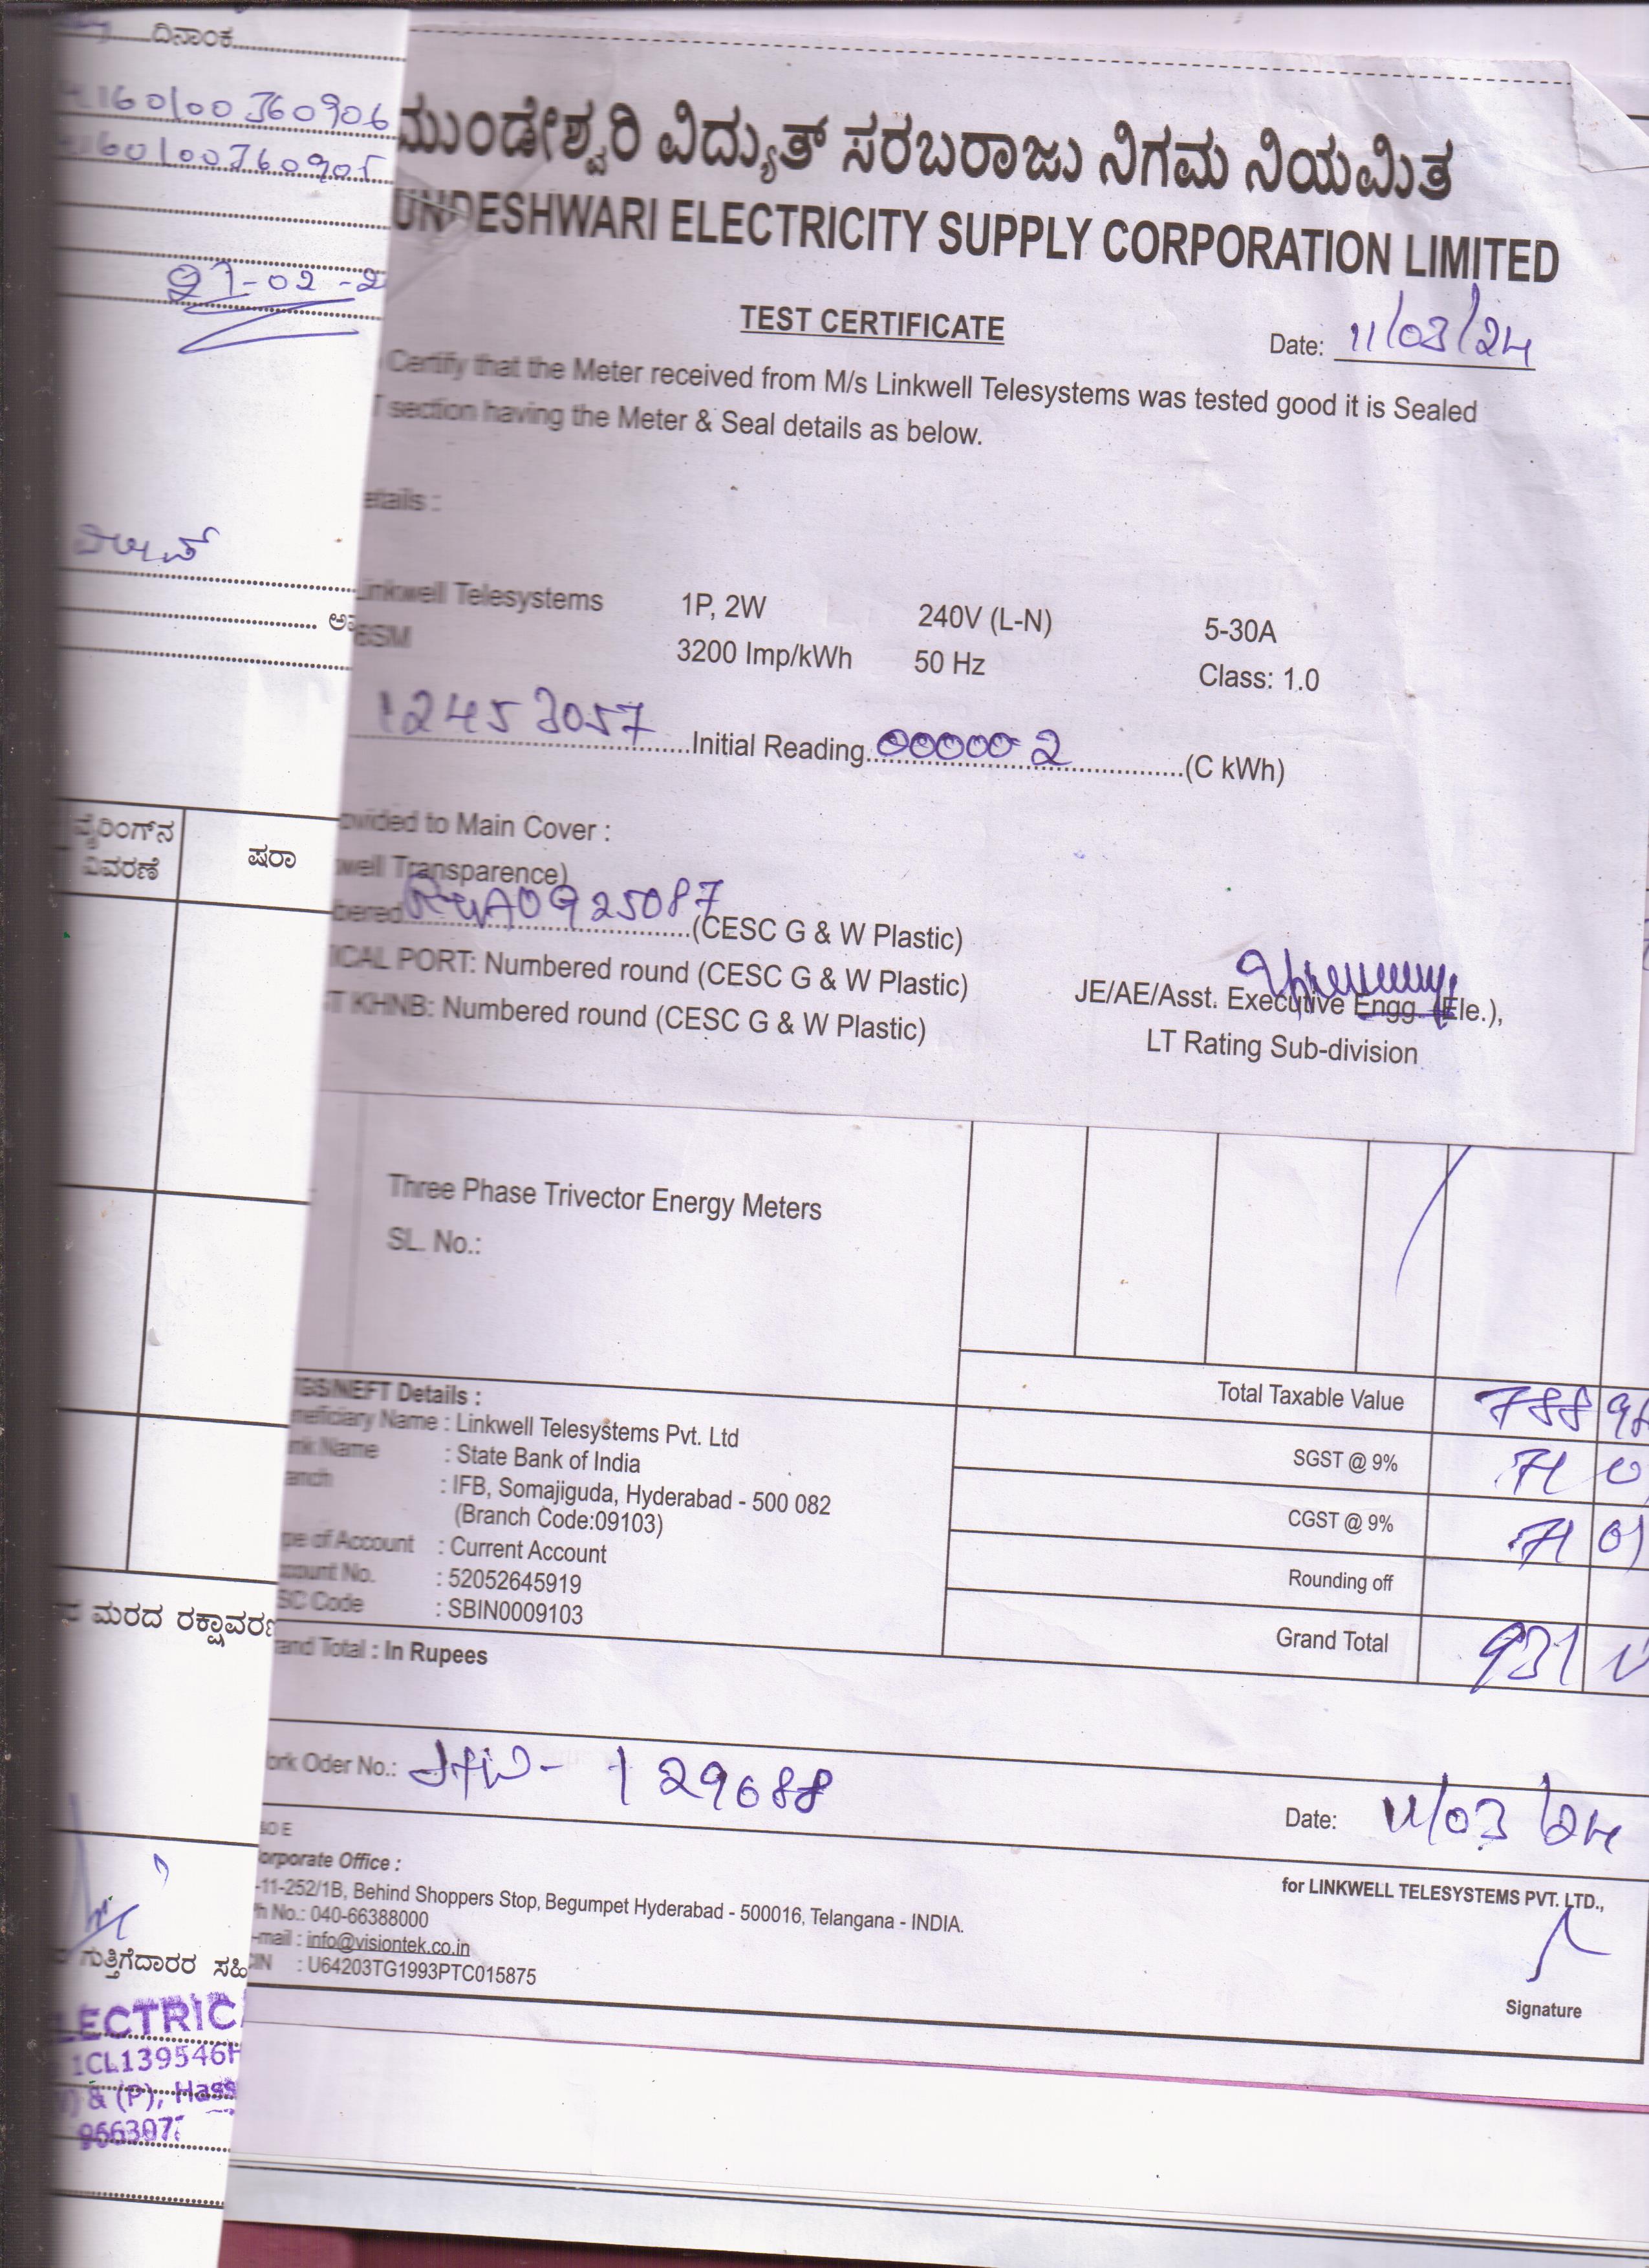 ದಿನಾಂಕ
160100360906
160100360905
27-02-2
ವೈರಿಂಗ್‌ನ
ವಿವರಣೆ
ಷರಾ
ಮರದ ರಕ್ಷಾವರಣ
ಗುತ್ತಿಗೆದಾರರ ಸಹಿ
LECTRICA
1CL139546H
& (P), Hass
966307
ಮುಂಡೇಶ್ವರಿ ವಿದ್ಯುತ್ ಸರಬರಾಜು ನಿಗಮ ನಿಯಮಿತ
UNDESHWARI ELECTRICITY SUPPLY CORPORATION LIMITED
TEST CERTIFICATE
Date: 11/03/24
Certify that the Meter received from M/s Linkwell Telesystems was tested good it is Sealed
T section having the Meter & Seal details as below.
etails :
Linkwell Telesystems 1P, 2W 240V (L-N) 5-30A
BSM 3200 Imp/kWh 50 Hz Class: 1.0
12453057 Initial Reading 000002 (C kWh)
ovided to Main Cover :
well Transparence)
bered A0925087 (CESC G & W Plastic)
ICAL PORT: Numbered round (CESC G & W Plastic)
T KHNB: Numbered round (CESC G & W Plastic)
JE/AE/Asst. Executive Engg. (Ele.),
LT Rating Sub-division
Three Phase Trivector Energy Meters
SL. No.:
Total Taxable Value 788 98
SGST @ 9% 71 0
CGST @ 9% 71 01
Rounding off
Grand Total 931
TGS/NEFT Details :
neficiary Name : Linkwell Telesystems Pvt. Ltd
nk Name : State Bank of India
anch : IFB, Somajiguda, Hyderabad - 500 082
(Branch Code:09103)
pe of Account : Current Account
count No. : 52052645919
SC Code : SBIN0009103
and Total : In Rupees
ork Oder No.: 129688
Date: 11/03/24
O E
orporate Office :
-11-252/1B, Behind Shoppers Stop, Begumpet Hyderabad - 500016, Telangana - INDIA.
Ph No.: 040-66388000
-mail : info@visiontek.co.in
CIN : U64203TG1993PTC015875
for LINKWELL TELESYSTEMS PVT. LTD.,
Signature